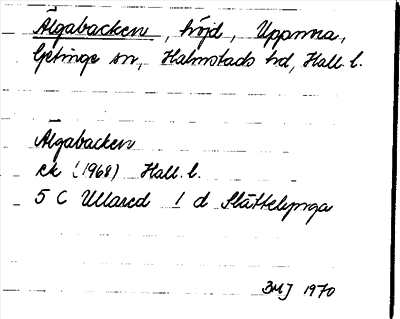 Älgabacken, höjd, Uppmma,
Getinge sn, Halmstads hd, Hall. l.
Älgabacken
ek (1968) Hall. l.
5 C Ullared 1 d Slättebynga
BMJ 1970